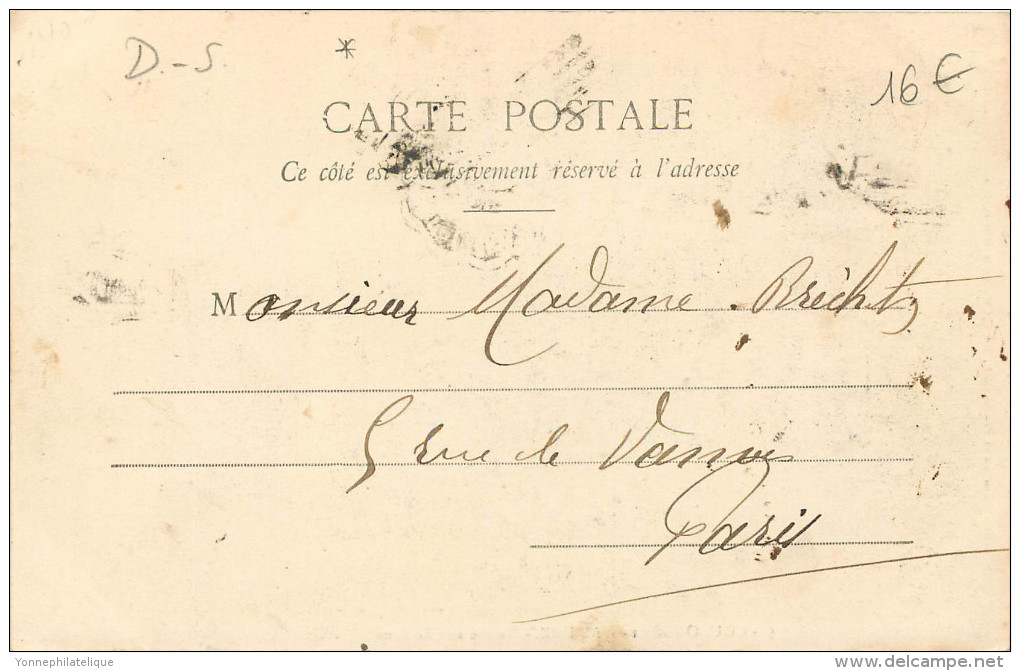 D-S. * 16€
CARTE POSTALE
Ce côté est exclusivement réservé à l'adresse
Monsieur Madame Brécht
5 rue de Vanves
Paris
Yonnephilatelique
www.delcampe.net